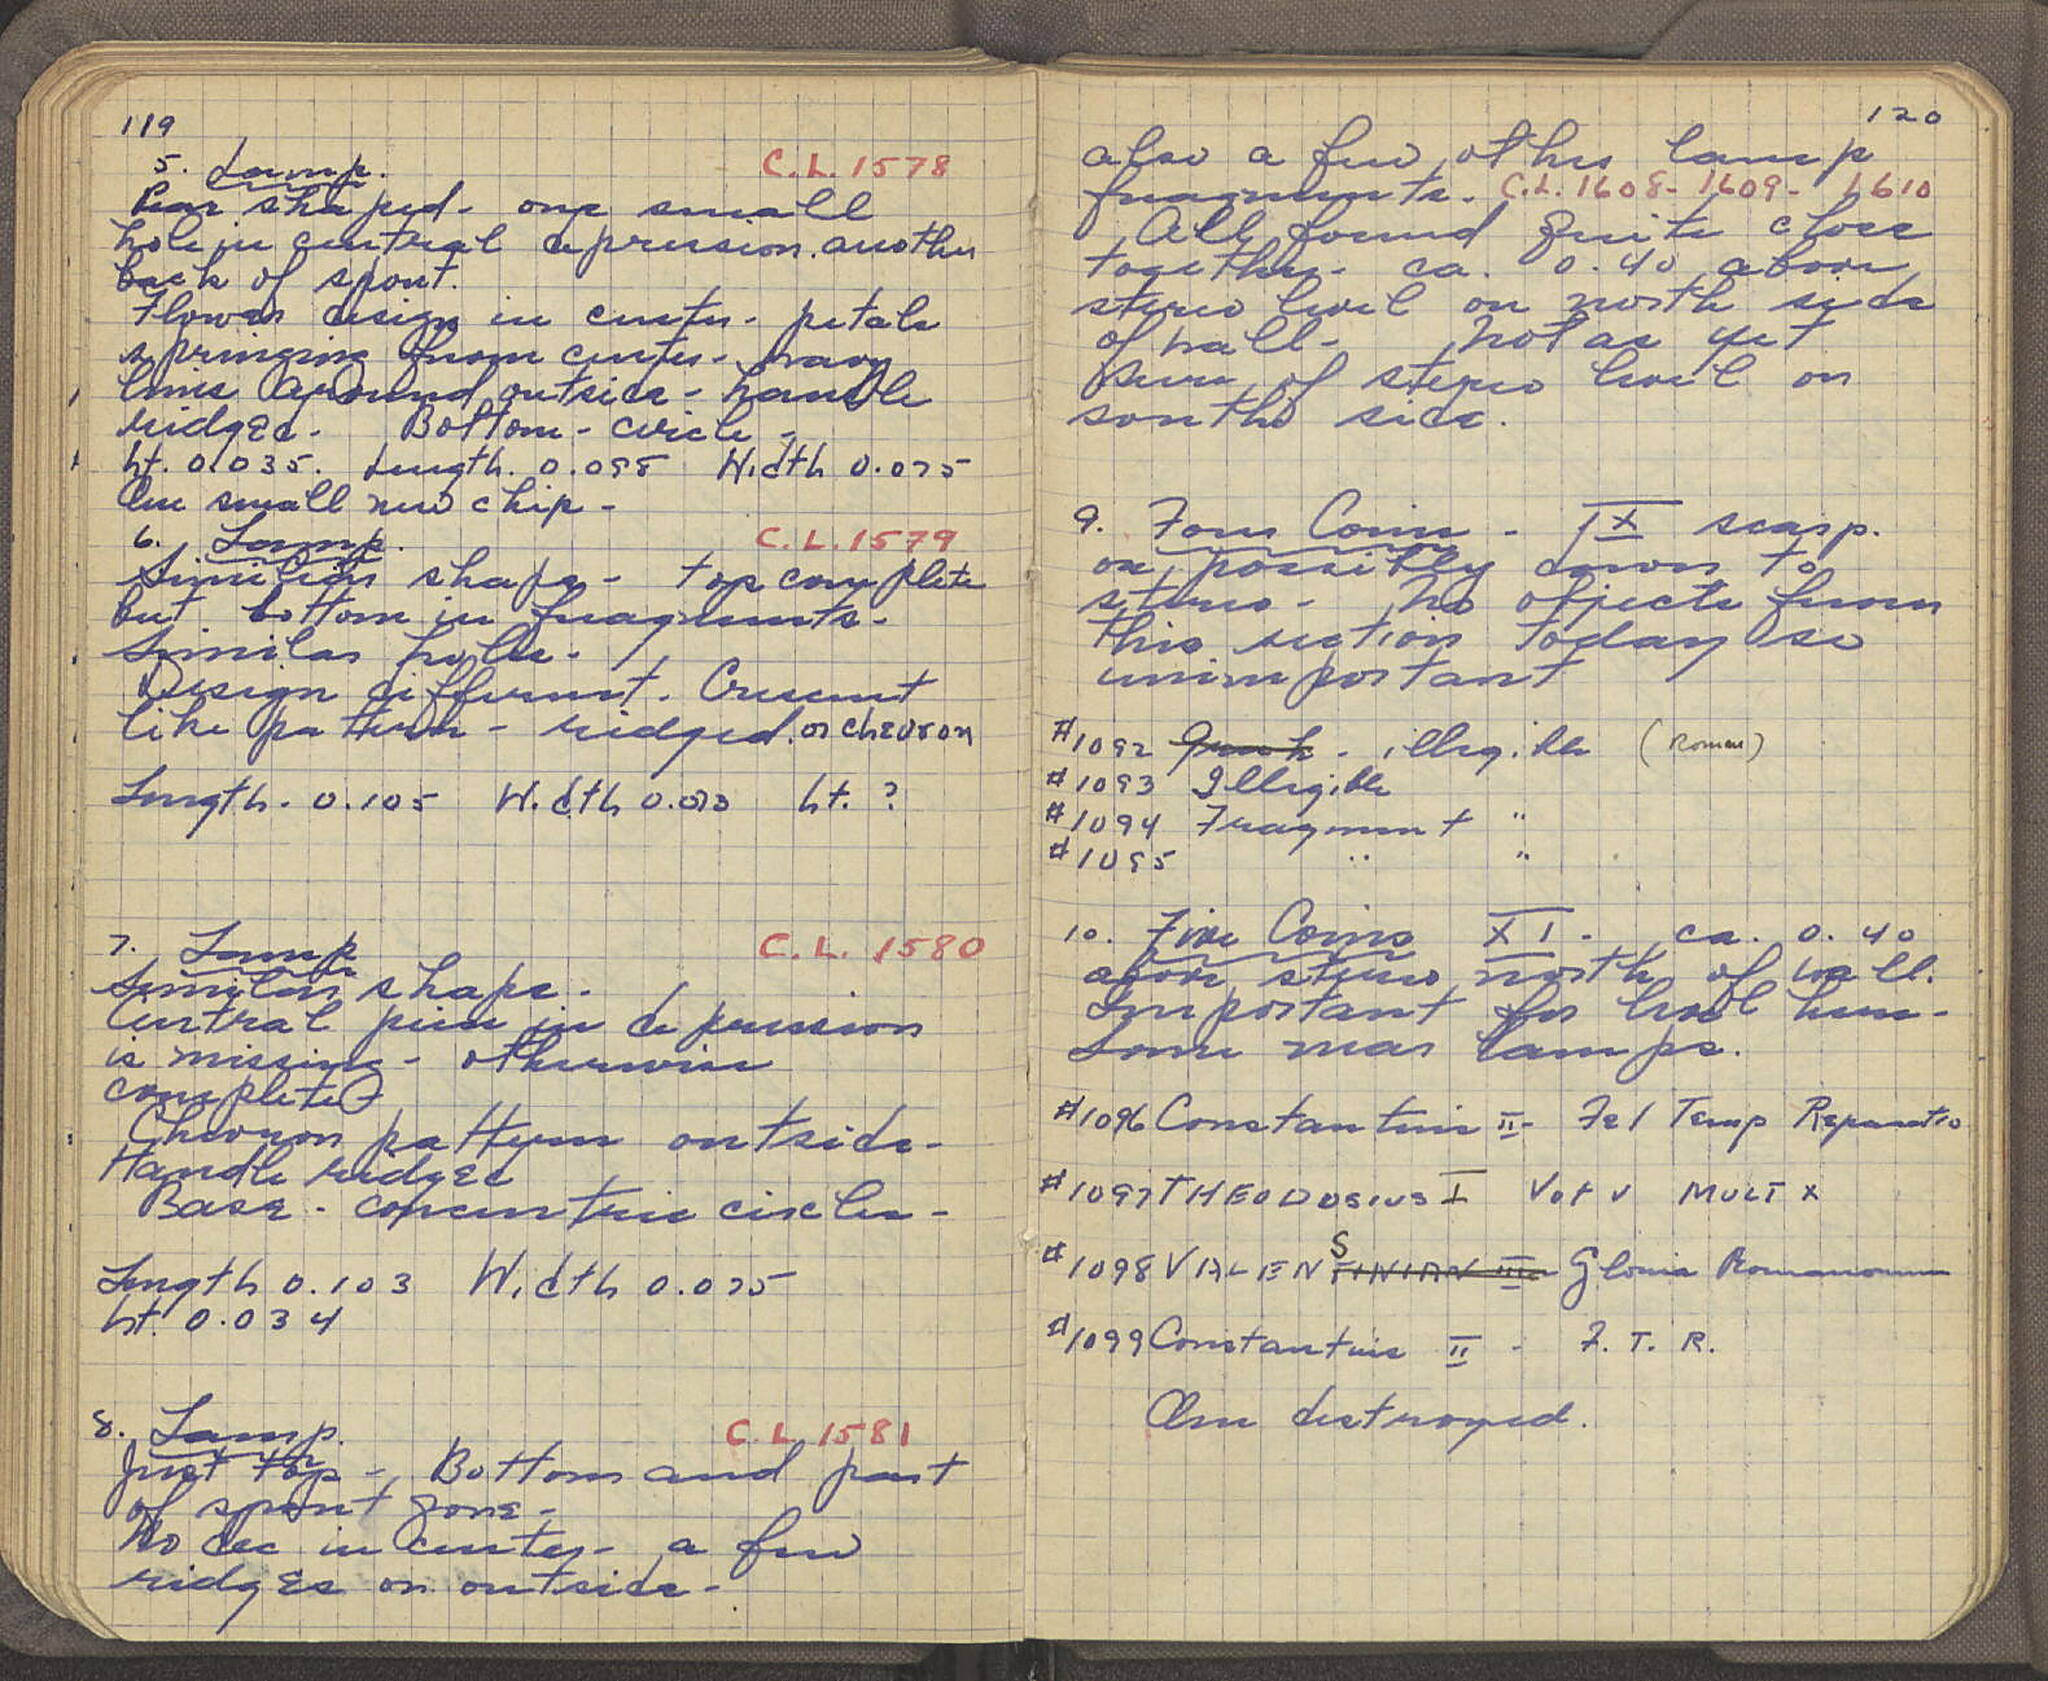 119
5. Lamp. C.L. 1578
Pear shaped - one small
hole in central depression. another
back of spout.
Flower design in center - petals
springing from center - wavy
lines around outside - handle
ridged - Bottom - circle -
ht. 0.035. Length. 0.098 Width 0.075
One small new chip -
6. Lamp. C.L. 1579
Similar shape - top complete
but bottom in fragments -
Similar holes -
Design different. Crescent
like pattern - ridged. or chevron
Length - 0.105 Width 0.073 ht. ?
7. Lamp C.L. 1580
Similar shape -
Central piece in depression
is missing - otherwise
complete
Chevron pattern outside -
Handle ridged
Base - concentric circles -
Length 0.103 Width 0.075
ht. 0.034
8. Lamp. C.L. 1581
Just top - Bottom and part
of spout gone -
No dec in center - a few
ridges on outside -
120
also a few other lamp
fragments. C.L. 1608 - 1609 - 1610
All found quite close
together - ca. 0.40 above
stereo level on north side
of wall - Not as yet
sure of stereo level on
south side.
9. Four Coins - IX scarp.
or possibly down to
stereo - No objects from
this section today so
unimportant
#1092 Greek - illegible (Roman)
#1093 Illegible
#1094 Fragment "
#1095 " "
10. Five Coins XI - ca. 0.40
above stereo north of wall.
Important for level here -
Some near lamps.
#1096 Constantius II - Fel Temp Reparatio
#1097 THEODOSIUS I Vot V MULT X
#1098 VALENS TINIAN III Gloria Romanorum
#1099 Constantius II - F. T. R.
One destroyed.